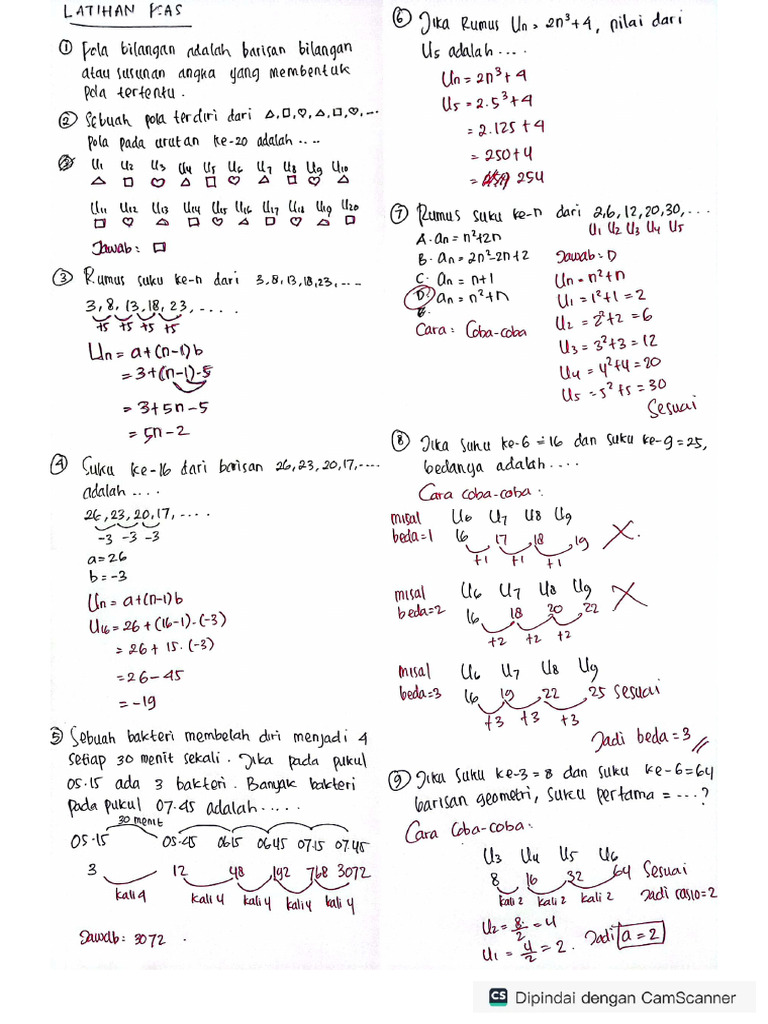 LATIHAN KAS
① Pola bilangan adalah barisan bilangan
atau susunan angka yang membentuk
pola tertentu.
② Sebuah pola terdiri dari △,□,♡,△,□,♡,...
Pola pada urutan ke-20 adalah....
U1 U2 U3 U4 U5 U6 U7 U8 U9 U10
△ □ ♡ △ □ ♡ △ □ ♡ △
U11 U12 U13 U14 U15 U16 U17 U18 U19 U20
□ ♡ △ □ ♡ △ □ ♡ △ □
Jawab: □
③ Rumus suku ke-n dari 3,8,13,18,23,....
3,8,13,18,23,.....
+5 +5 +5 +5
Un = a+(n-1)b
= 3+(n-1)·5
= 3+5n-5
= 5n-2
④ Suku ke-16 dari barisan 26,23,20,17,....
adalah....
26,23,20,17,.....
-3 -3 -3
a=26
b=-3
Un = a+(n-1)b
U16 = 26+(16-1)·(-3)
= 26+15·(-3)
= 26-45
= -19
⑤ Sebuah bakteri membelah diri menjadi 4
setiap 30 menit sekali. Jika pada pukul
05.15 ada 3 bakteri. Banyak bakteri
pada pukul 07.45 adalah.....
30 menit
05.15 05.45 0615 0645 07.15 07.45
3 12 48 192 768 3072
kali 4 kali 4 kali 4 kali 4 kali 4
Jawab: 3072.
⑥ Jika Rumus Un = 2n³+4, nilai dari
U5 adalah....
Un = 2n³+4
U5 = 2.5³+4
= 2.125+4
= 250+4
= 254
⑦ Rumus suku ke-n dari 2,6,12,20,30,...
U1 U2 U3 U4 U5
A. an = n²+2n
B. an = 2n²-2n+2
C. an = n+1
D. an = n²+n
Cara: Coba-coba
Jawab: D
Un = n²+n
U1 = 1²+1 = 2
U2 = 2²+2 = 6
U3 = 3²+3 = 12
U4 = 4²+4 = 20
U5 = 5²+5 = 30
Sesuai
⑧ Jika suku ke-6 = 16 dan suku ke-9 = 25,
bedanya adalah....
Cara coba-coba:
misal U6 U7 U8 U9
beda=1 16 17 18 19 X.
+1 +1 +1
misal U6 U7 U8 U9
beda=2 16 18 20 22 X
+2 +2 +2
misal U6 U7 U8 U9
beda=3 16 19 22 25 Sesuai
+3 +3 +3
Jadi beda = 3 //
⑨ Jika suku ke-3 = 8 dan suku ke-6 = 64
barisan geometri, suku pertama = ....?
Cara Coba-coba:
U3 U4 U5 U6
8 16 32 64 Sesuai
kali 2 kali 2 kali 2 Jadi rasio = 2
U2 = 8/2 = 4
U1 = 4/2 = 2. Jadi a = 2
CS Dipindai dengan CamScanner